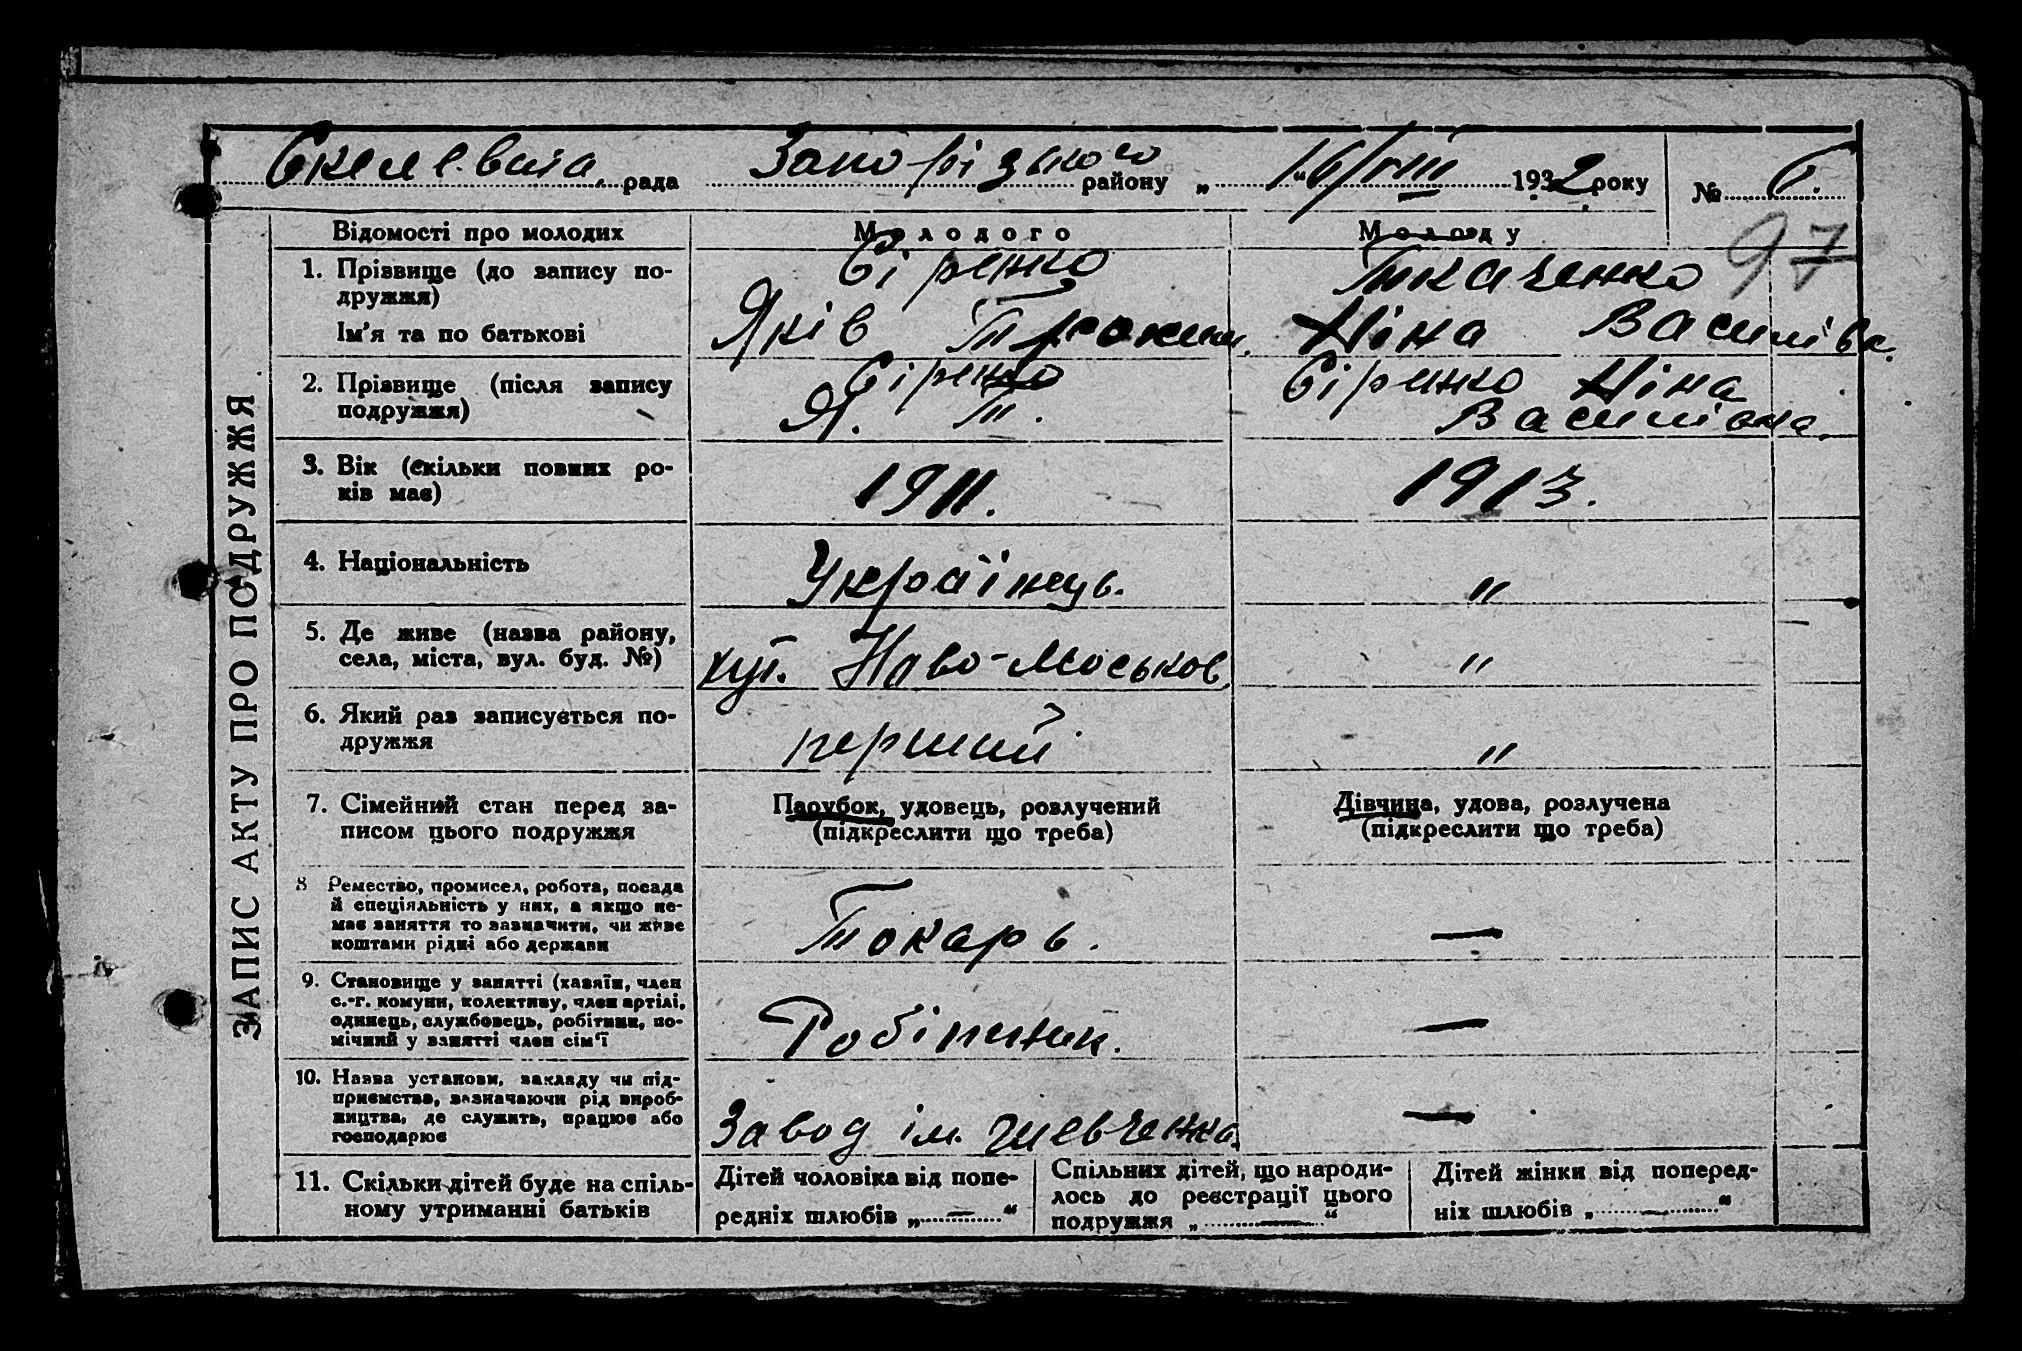 ЗАПИС АКТУ ПРО ПОДРУЖЖЯ
Скелевата рада Запорізького району „16/VIII“ 1932 року №
97
Відомості про молодих Молодого Молоду
1. Прізвище (до запису по- Сіренко Ткаченко
дружжя)
Ім'я та по батькові Яків Ніна Василівн.
2. Прізвище (після запису Сіренко Сіренко Ніна
подружжя) Я. Т. Василівна.
3. Вік (скільки повних ро- 1911. 1913.
ків має)
4. Національність Українець. "
5. Де живе (назва району,
села, міста, вул. буд. №) хут. Ново-Московс "
6. Який раз записується по-
дружжя перший "
7. Сімейний стан перед за- Парубок, удовець, розлучений Дівчина, удова, розлучена
писом цього подружжя (підкреслити що треба) (підкреслити що треба)
8 Ремество, промисел, робота, посада
й спеціяльність у них, а якщо не-
має заняття то зазначити, чи живе Токарь. —
коштами рідні або держави
9. Становище у занятті (хазяїн, член
с.-г. комуни, колективу, член артілі,
одинець, службовець, робітник, по- Робітник. —
мічний у занятті член сім'ї
10. Назва установи, закладу чи під-
приємства, зазначаючи рід вироб-
ництва, де служить, працює або Завод ім. Шевченка. —
господарює
11. Скільки дітей буде на спіль-
ному утриманні батьків
Дітей чоловіка від попе-
редніх шлюбів „—“
Спільних дітей, що народи-
лось до реєстрації цього
подружжя „—“
Дітей жінки від поперед-
ніх шлюбів „—“